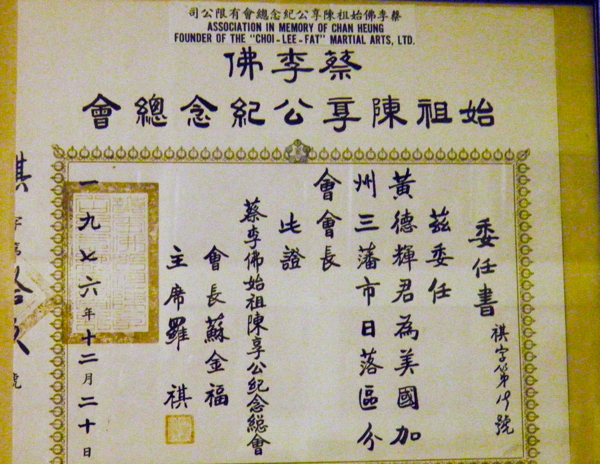 蔡李佛始祖陳享公紀念總會有限公司
ASSOCIATION IN MEMORY OF CHAN HEUNG
FOUNDER OF THE "CHOI-LEE-FAT" MARTIAL ARTS, LTD.
蔡李佛
始祖陳享公紀念總會
委任書
祺字第19號
茲委任
黃德輝君為美國加
州三藩市日落區分
會會長
此證
蔡李佛始祖陳享公紀念總會
會長蘇金福
主席羅祺
一九七六年十二月二十日